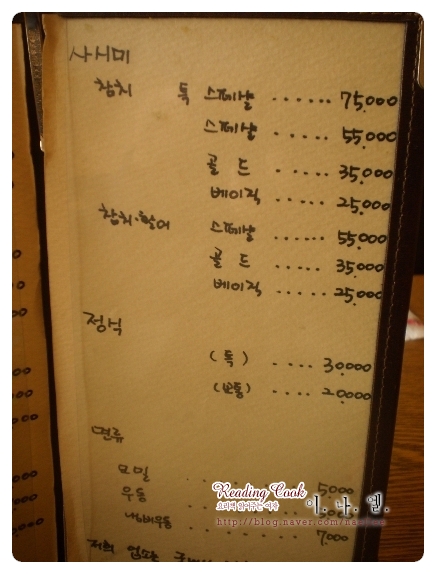 사시미
참치 특 스페샬 ...... 75,000
스페샬 ..... 55,000
골드 ..... 35,000
베이직 ..... 25,000
참치·활어 스페샬 ..... 55,000
골드 ..... 35,000
베이직 ..... 25,000
정식
(특) .... 30,000
(보통) .... 20,000
면류
모밀 5,000
우동
냄비우동 7,000
저희 업소는
Reading Cook
요리책 읽어주는 여자
이.나.엘.
http://blog.naver.com/